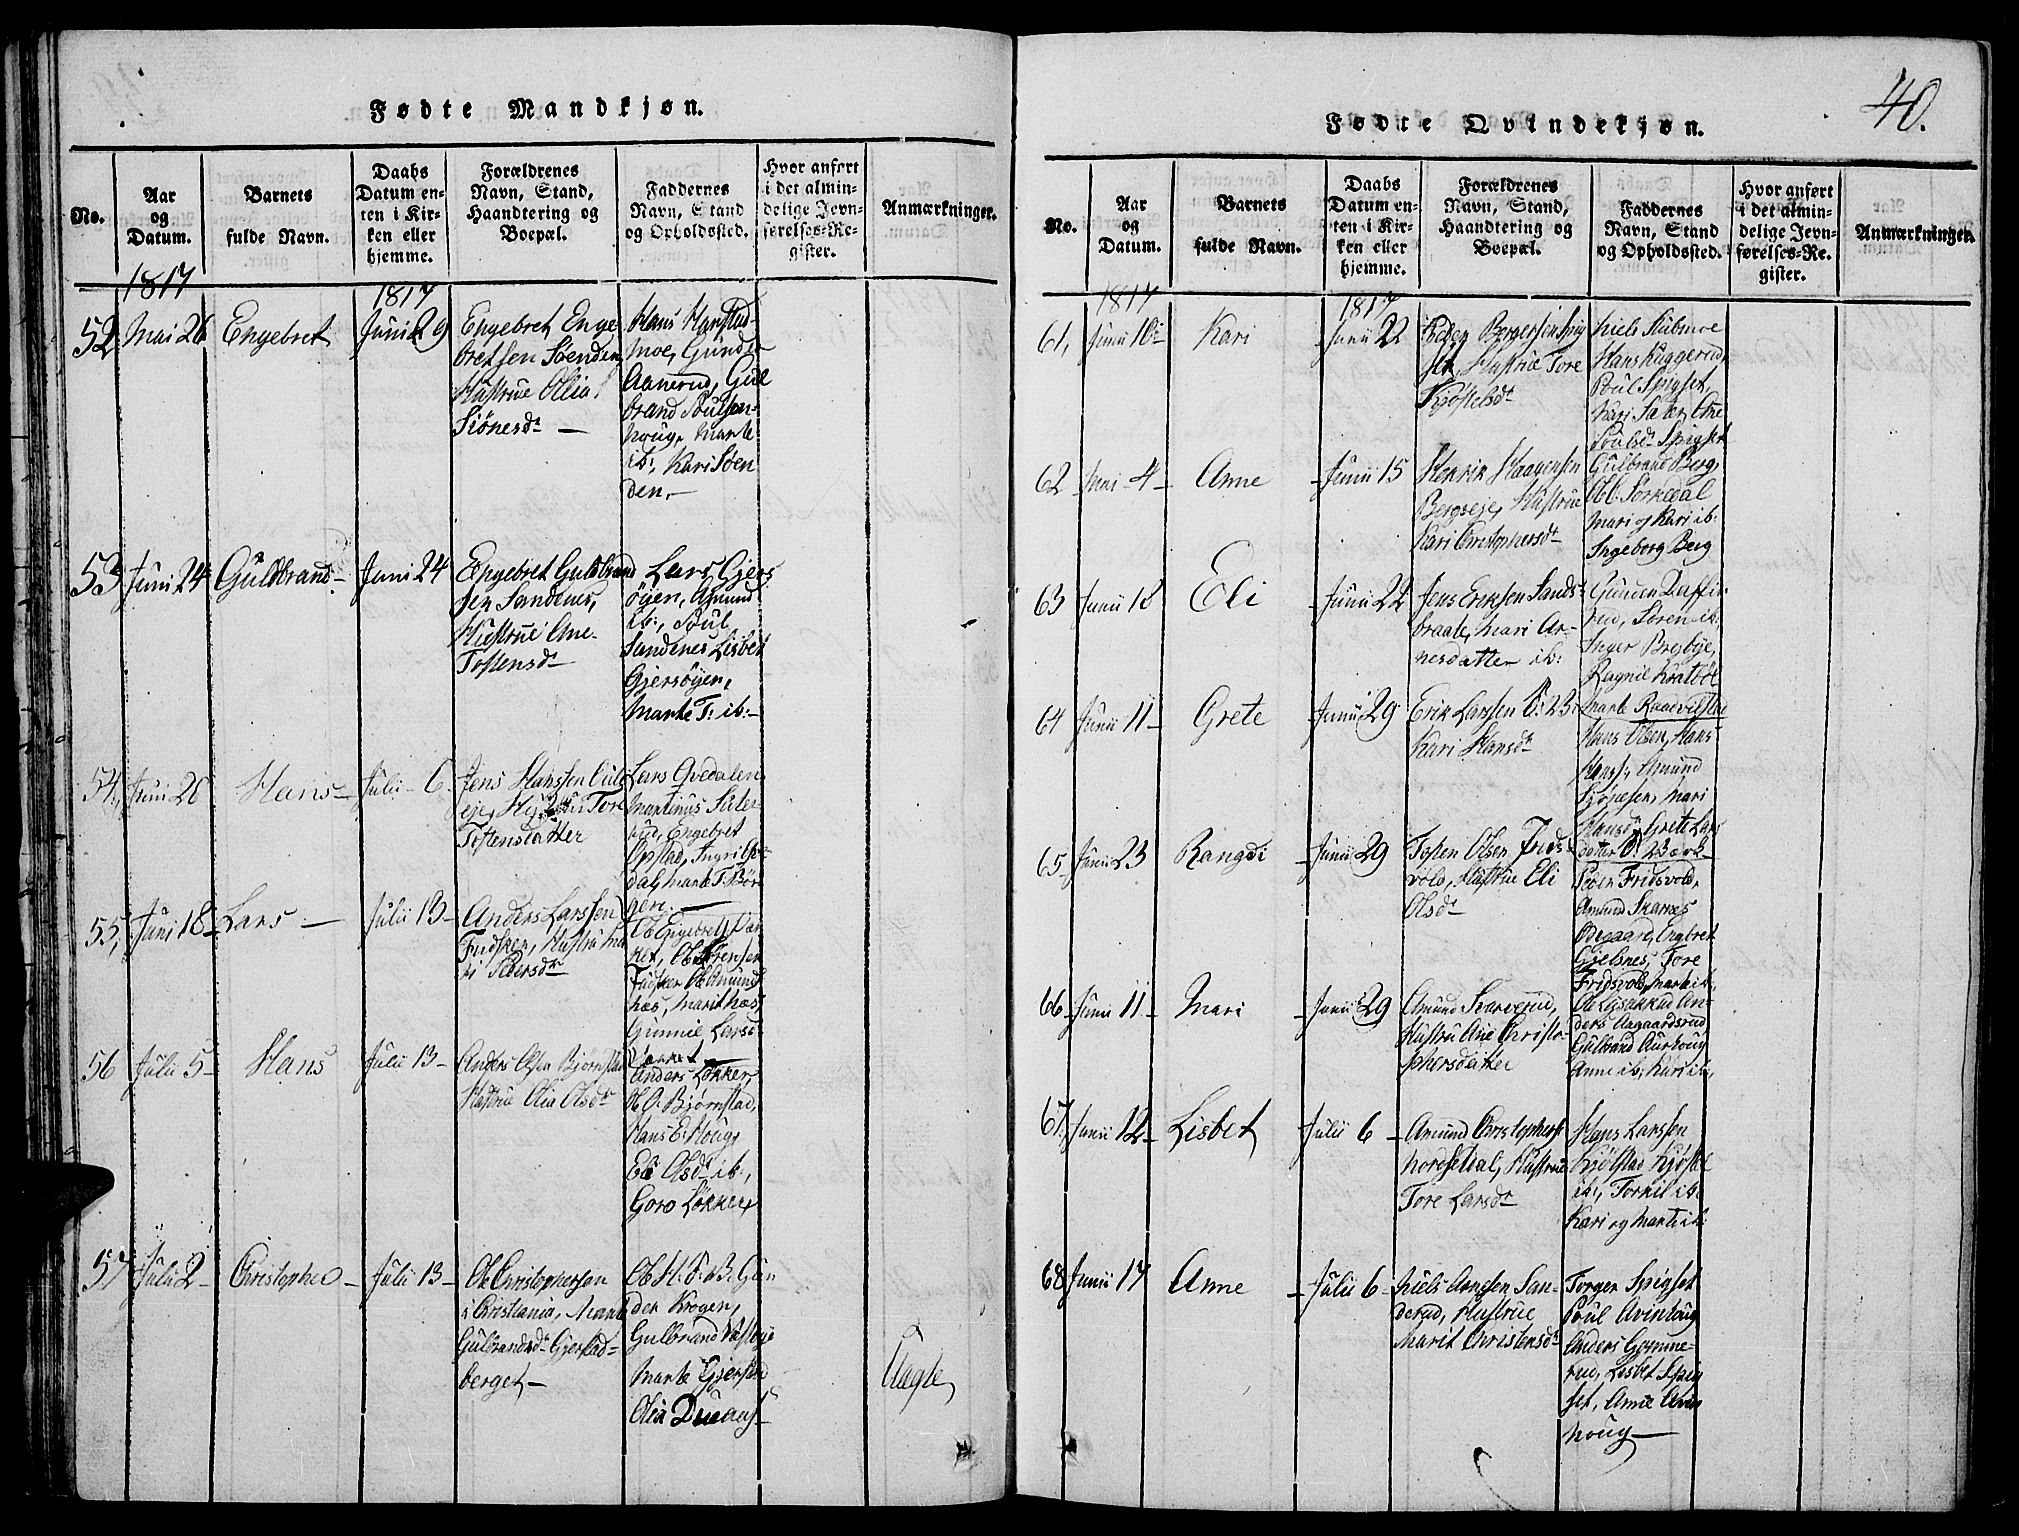 Fødte Mandkjøn.
No.
Aar
og
Datum.
Barnets
fulde Navn.
Daabs
Datum en-
ten i Kir-
ken eller
hjemme.
Forældrenes
Navn, Stand,
Haandtering og
Boepæl.
Faddernes
Navn, Stand
og Opholdssted.
Hvor anført
i det almin-
delige Jevn-
førelses-Re-
gister.
Anmærkninger.
1817
1817
52
Mai 26
Engebret
Junii 29
Engebret Enge
bretsen Soenden,
Hustrue Olia
Siönesdr
Hans Harstad-
moe, Gunder
Aanerud, Gul
brand Poulsen-
houg, Marte
ib:, Kari Soen
den,
53
Juni 24
Guldbrand
Juni 24
Engebret Guldbrand
sen Sandenes,
Hustrue Ane
Tostensdr
Lars Gjers
öyen, Amund
ib:, Poul
Sandenes Lisbet
Gjersöyen,
Marte T: ib:
54,
Juni 28
Hans
Julii 6
Jens Hanssen
eje, Tore
Tostensdatter
Lars Qvedalen
Martinus Sæter-
Engebret
Opstad, Ingri
dal, Marte T:
geri.
55,
Juni 18
Lars
Julii 13
Anders Larssen
Fudsker, Hustru Ma
ri Pedersdr
Ole Engebrets
ket, Ole Sörensen
Fudsker Ole Amund
næs, Marit næs,
Gunnil Larsd
56
Julii 5
Hans
Julii 13
Anders Olsen Bjørnstad
Hustrue Olia Olsdr
Anders Løkken
Ol. O. Bjørnstad,
Hans E. Houg,
Eli Olsd ib,
Goro Løkken
57
Julii 2
Christopher
Julii 13
Ole Christophersen
i Christiania, Marte
Gulbrandsdr Gjerstad-
berget
Gun
der Krogen,
Gulbrand
Marte Gjerstad
Olia
Uægte
40.
Fødte Qvindekjøn.
No.
Aar
og
Datum.
Barnets
fulde Navn.
Daabs
Datum en-
ten i Kir-
ken eller
hjemme.
Forældrenes
Navn, Stand,
Haandtering og
Boepæl.
Faddernes
Navn, Stand
og Opholdssted.
Hvor anført
i det almin-
delige Jevn-
førelses-Re-
gister.
Anmærkninger.
1817
1817
61,
Junii 10
Kari
Junii 22
Peder Bergersen Spig
set, Hustrue Tore
Kjöstelsdr
Niels Stubmoe
Hans Kuggerud,
Poul Spigset,
Kari Sater, Ane
Poulsd Spigset
62
Juni 4
Anne
Junii 15
Henrik Haagensen
Bergseje, Hustrue
Kari Christophersdr
Gulbrand Berg,
Ol. Sorkedal
Mari og Kari ib:
Ingeborg Berg
63
Junii 18
Eli
Junii 22
Jens Eriksen Sands-
braate, Mari Ar-
nesdatter ib:
Gunder
rud, Søren ib:
Inger Bregbye,
Ragnil
64
Junii 11
Grete
Junii 29
Erik Larssen
Kari Hansdr
Marte
Hans Olsen, Hans
Hanss, Amund
Mari
Hansdr Grete Lars
datter
65
Junii 23
Rangdi
Junii 29
Tosten Olsen Frids-
vold, Hustrue Eli
Olsdr
Peder Fridsvold,
Amund Skarnes
Odegaard, Engbret
Gjelsnes, Tore
Fridsvold, Marte ib:
66
Junii 11
Mari
Junii 29
Amund Skarverud,
Hustru Ane Christo-
phersdatter
Ole Lisakkud An-
ders Aagaardsrud,
Gulbrand Aurhoug
Anne ib; Kari ib;
67,
Junii 12
Lisbet
Julii 6
Amund Christophers
Nordsetdal, Hustrue
Tore Larsdr
Hans Larssen
Kjölstad Kjöstel
ib:, Torkil ib:
Kari og Marte ib:
68
Junii 17
Anne
Julii 6
Niels Arnesen San-
derud, Hustrue
Marit Christensdr
Torger Spigset
Poul Avinhoug
Anders Gomme-
rud, Lisbet Spig
set, Anne Avin
houg